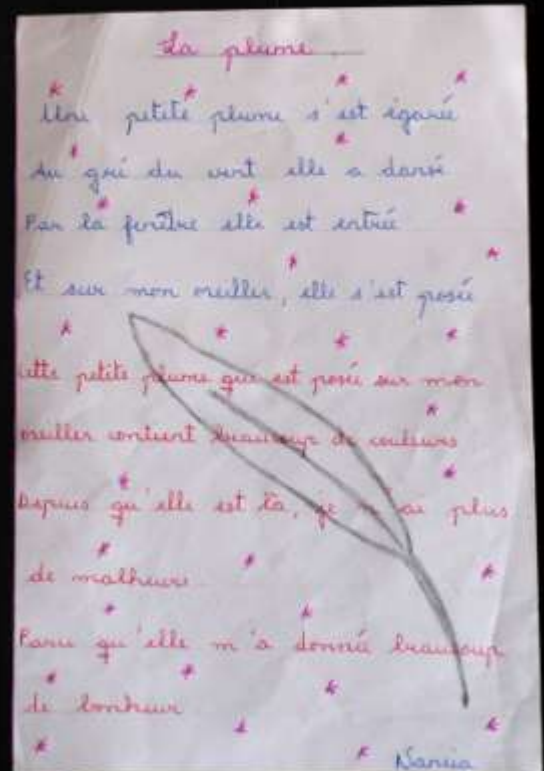 La plume
Une petite plume s'est égarée
Au gré du vent elle a dansé
Par la fenêtre elle est entrée
Et sur mon oreiller, elle s'est posée
Cette petite plume qui est posée sur mon
oreiller contient beaucoup de couleurs
Depuis qu'elle est là, je n'ai plus
de malheurs
Parce qu'elle m'a donné beaucoup
de bonheur